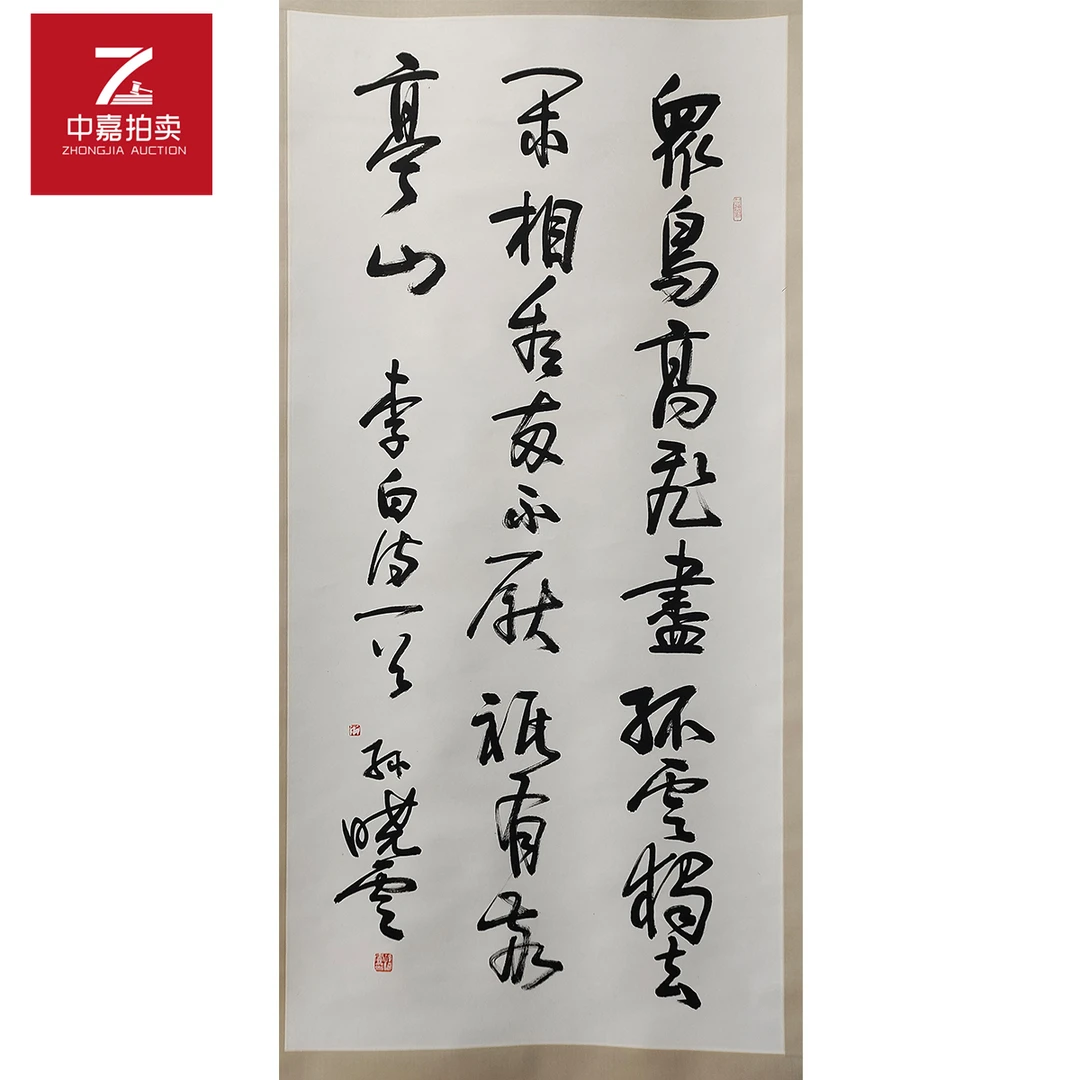 中嘉拍卖
ZHONGJIA AUCTION
眾鳥高飛盡孤雲獨去
閑相看兩不厭祇有敬
亭山 李白詩一首 孫曉雲